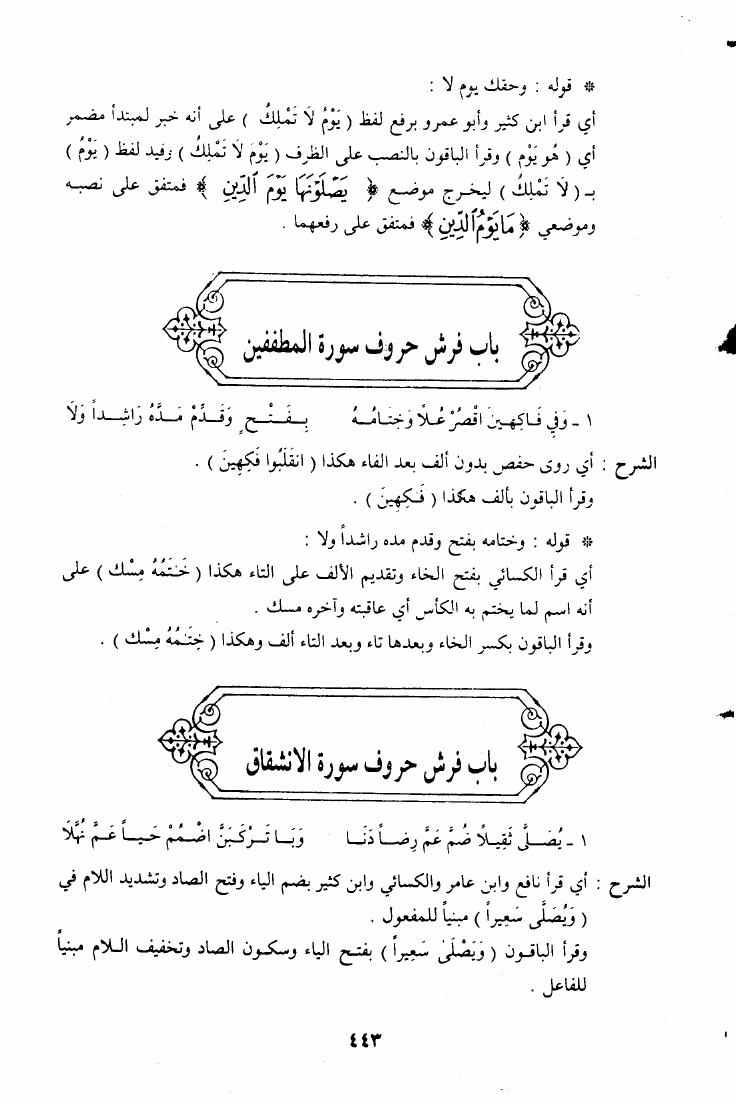 * قوله : وحقك يوم لا :
أي قرأ ابن كثير وأبو عمرو برفع لفظ ( يَوْمُ لَا تَمْلِكُ ) على أنه خبر لمبتدأ مضمر
أي ( هُو يَوْم ) وقرأ الباقون بالنصب على الظرف ( يَوْمَ لَا تَمْلِكُ ) وقيد لفظ ( يَوْمُ )
بـ ( لَا تَمْلِكُ ) ليخرج موضع ﴿ يَصْلَوْنَهَا يَوْمَ ٱلدِّينِ ﴾ فمتفق على نصبه
وموضعي ﴿ مَايَوْمُ ٱلدِّينِ ﴾ فمتفق على رفعهما .
باب فرش حروف سورة المطففين
١ - وَفِي فَـاكِهِـينَ اقْصُرْ عُـلاً وَخِتَـامُـهُ بِـفَـتْـحٍ وَقَـدِّمْ مَـدَّهُ رَاشِـداً وَلَا
الشرح : أي روى حفص بدون ألف بعد الفاء هكذا ( انْقَلَبُوا فَكِهِينَ ) .
وقرأ الباقون بألف هكذا ( فَـٰكِهِينَ ) .
* قوله : وختامه بفتح وقدم مده راشداً ولا :
أي قرأ الكسائي بفتح الخاء وتقديم الألف على التاء هكذا ( خَـٰتَمُهُ مِسْك ) على
أنه اسم لما يختم به الكأس أي عاقبته وآخره مسك .
وقرأ الباقون بكسر الخاء وبعدها تاء وبعد التاء ألف وهكذا ( خِتَـٰمُهُ مِسْك ) .
باب فرش حروف سورة الانشقاق
١ - يُصَـلَّى ثَقِيـلاً ضُمَّ عَمَّ رِضـاً دَنَـا وَبَـا تَـرْكَبَنَّ اضْمُمْ حَيـاً عَـمَّ نُهَّلَا
الشرح : أي قرأ نافع وابن عامر والكسائي وابن كثير بضم الياء وفتح الصاد وتشديد اللام في
( وَيُصَلَّى سَعِيراً ) مبنياً للمفعول .
وقرأ الباقـون ( وَيَصْلَىٰ سَعِيراً ) بفتـح الياء وسكـون الصاد وتخفيف الـلام مبنياً
للفاعل .
٤٤٣